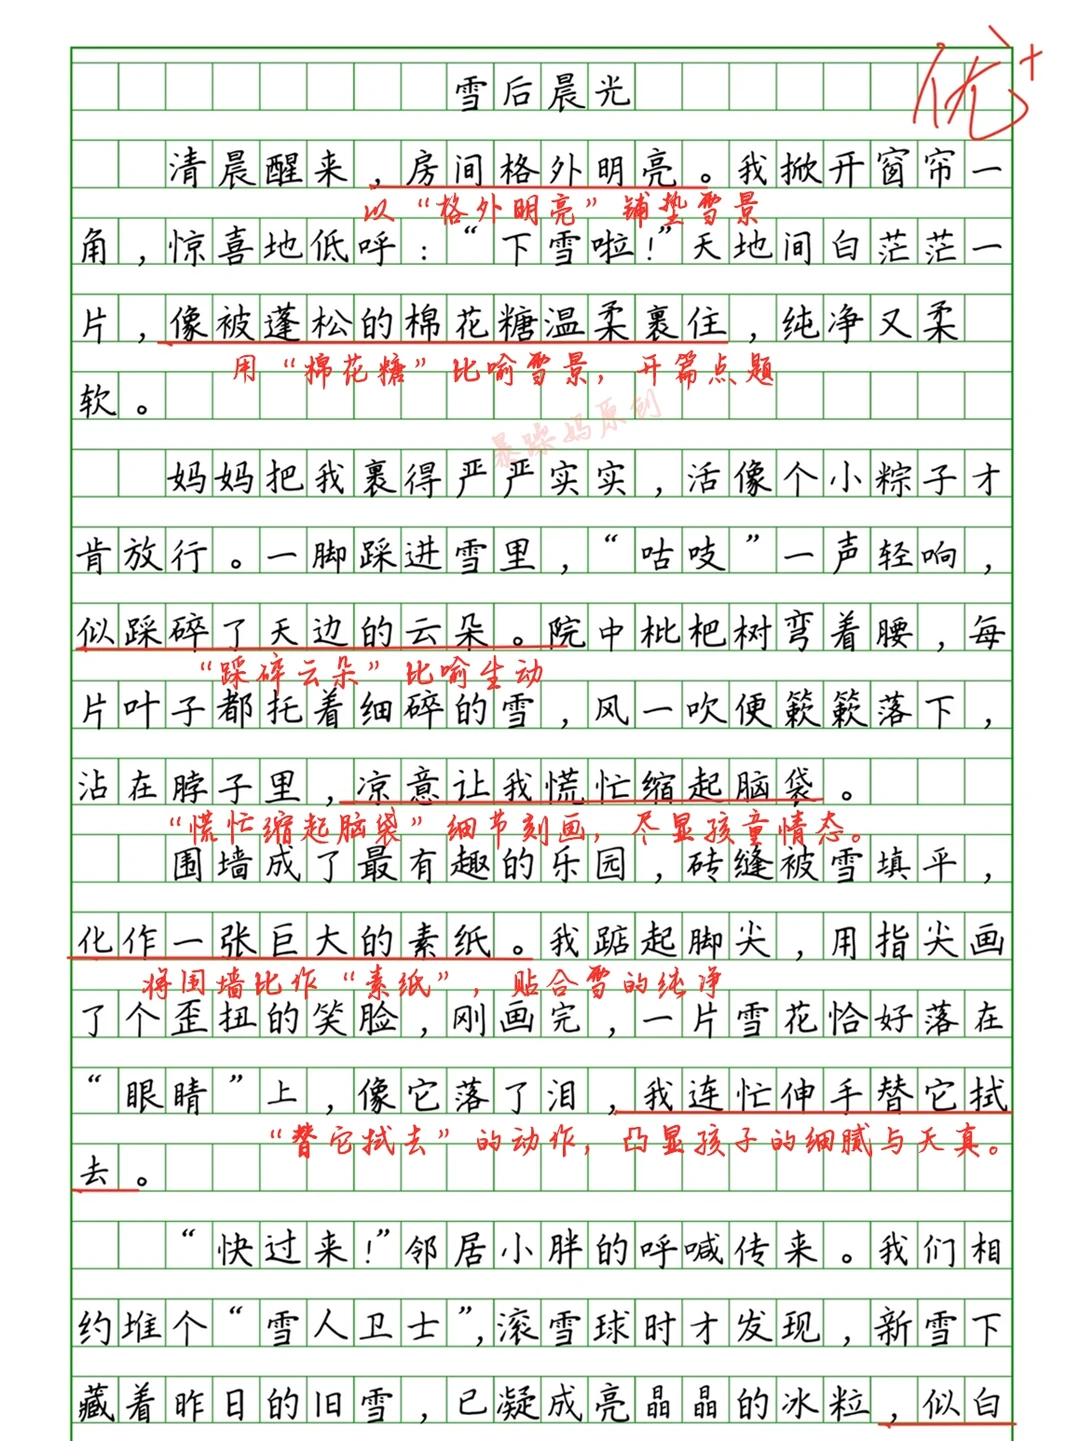 雪后晨光
优+
清晨醒来，房间格外明亮。我掀开窗帘一
以“格外明亮”铺垫雪景
角，惊喜地低呼：“下雪啦！”天地间白茫茫一
片，像被蓬松的棉花糖温柔裹住，纯净又柔
用“棉花糖”比喻雪景，开篇点题
软。
暴躁妈原创
妈妈把我裹得严严实实，活像个小粽子才
肯放行。一脚踩进雪里，“咕吱”一声轻响，
似踩碎了天边的云朵。院中枇杷树弯着腰，每
“踩碎云朵”比喻生动
片叶子都托着细碎的雪，风一吹便簌簌落下，
沾在脖子里，凉意让我慌忙缩起脑袋。
“慌忙缩起脑袋”细节刻画，尽显孩童情态。
围墙成了最有趣的乐园，砖缝被雪填平，
化作一张巨大的素纸。我踮起脚尖，用指尖画
将围墙比作“素纸”，贴合雪的纯净
了个歪扭的笑脸，刚画完，一片雪花恰好落在
“眼睛”上，像它落了泪，我连忙伸手替它拭
“替它拭去”的动作，凸显孩子的细腻与天真。
去。
“快过来！”邻居小胖的呼喊传来。我们相
约堆个“雪人卫士”，滚雪球时才发现，新雪下
藏着昨日的旧雪，已凝成亮晶晶的冰粒，似白